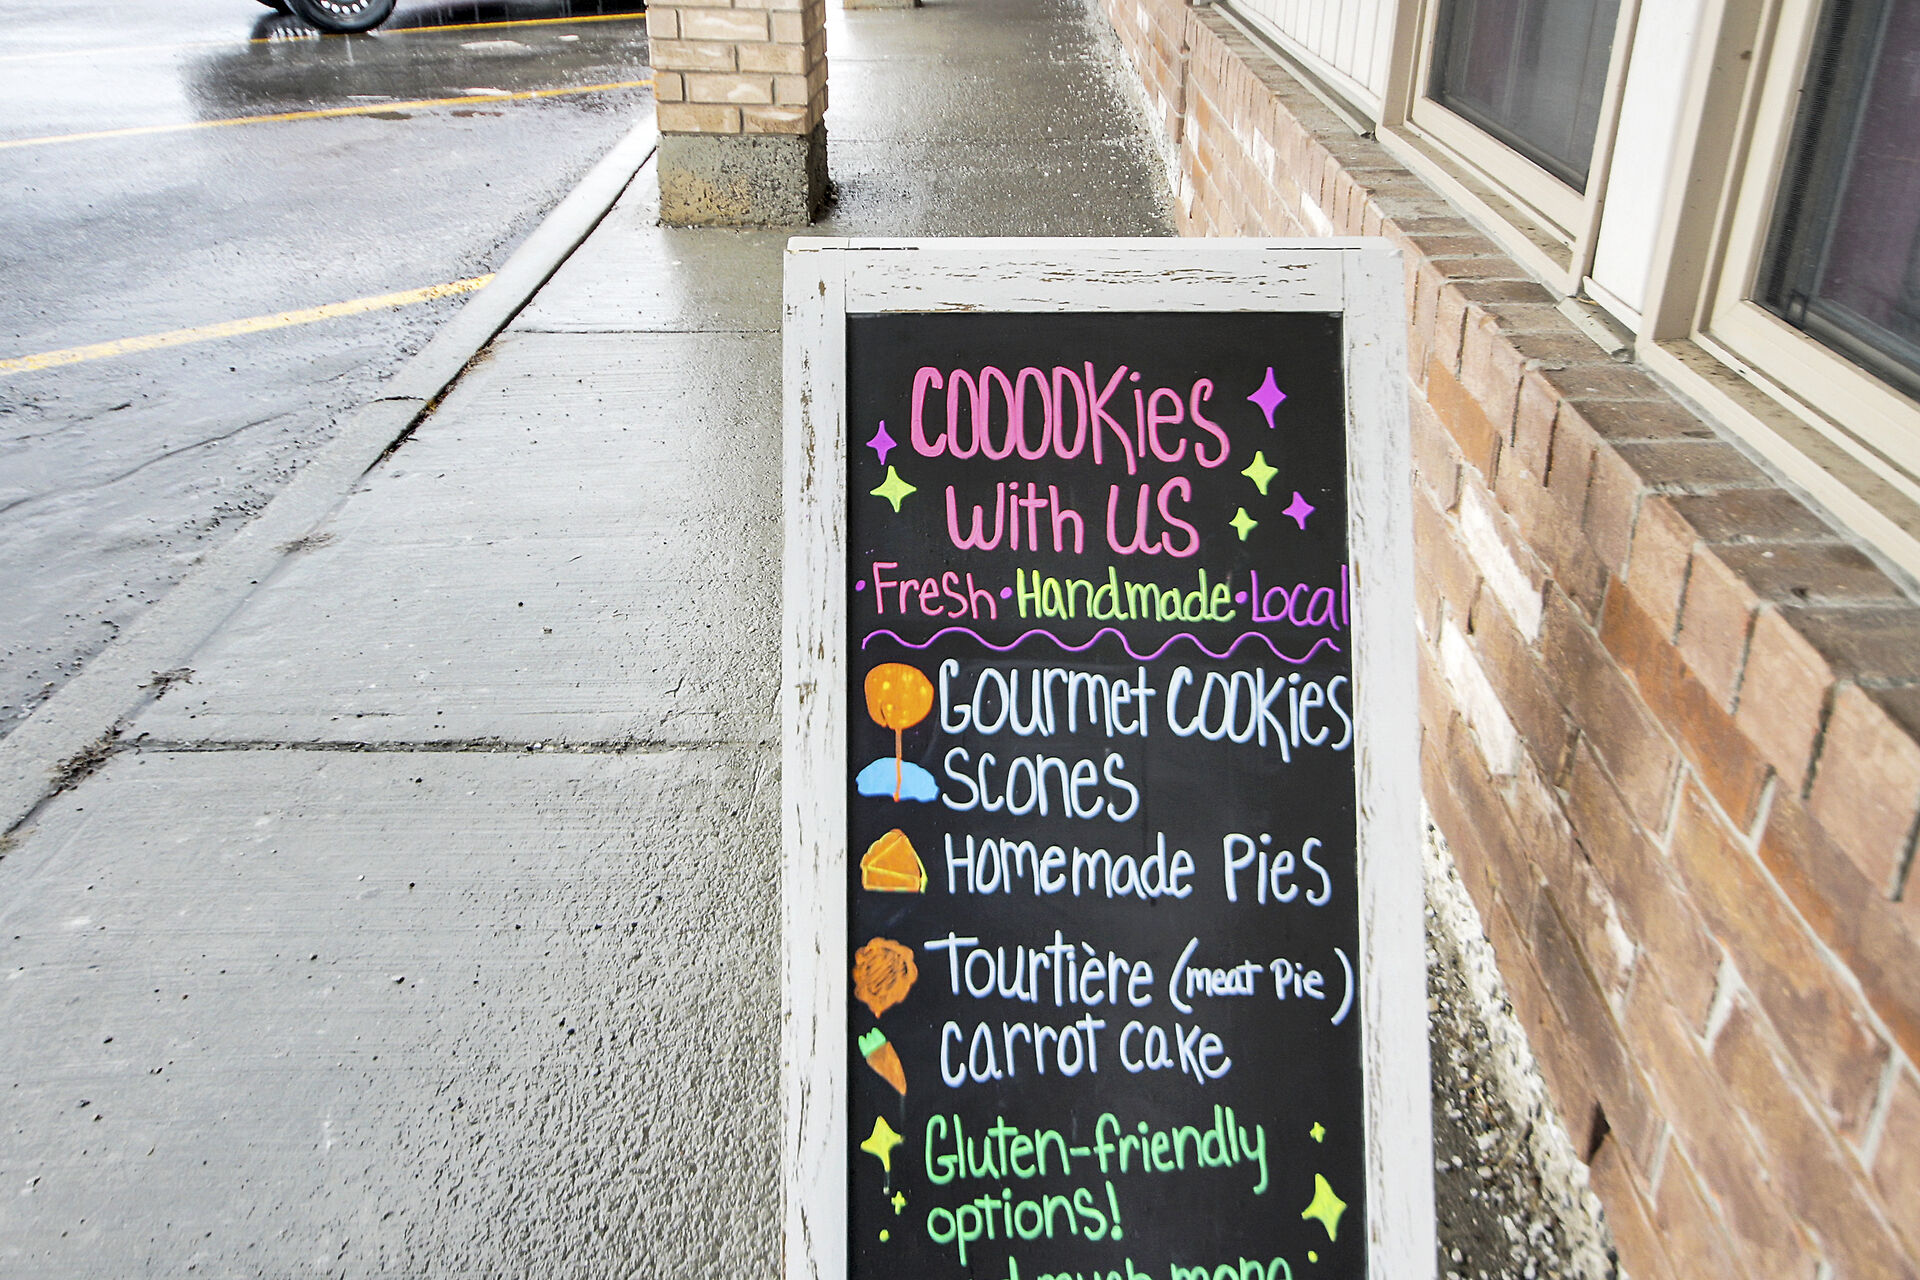 COOOOKies
With US
·Fresh·Handmade·Local
Gourmet Cookies
Scones
Homemade Pies
Tourtière (meat Pie)
Carrot Cake
Gluten-friendly
options!
much